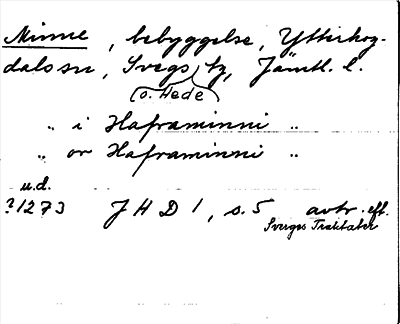 Minne, bebyggelse, Ytterhog-
dals sn, Svegs tg, Jämtl. l.
(o. Hede)
„ i Haframinni „
„ or Haframinni „
u.d.
?1273 JHD 1, s. 5 avtr. eft.
Sveriges Traktater